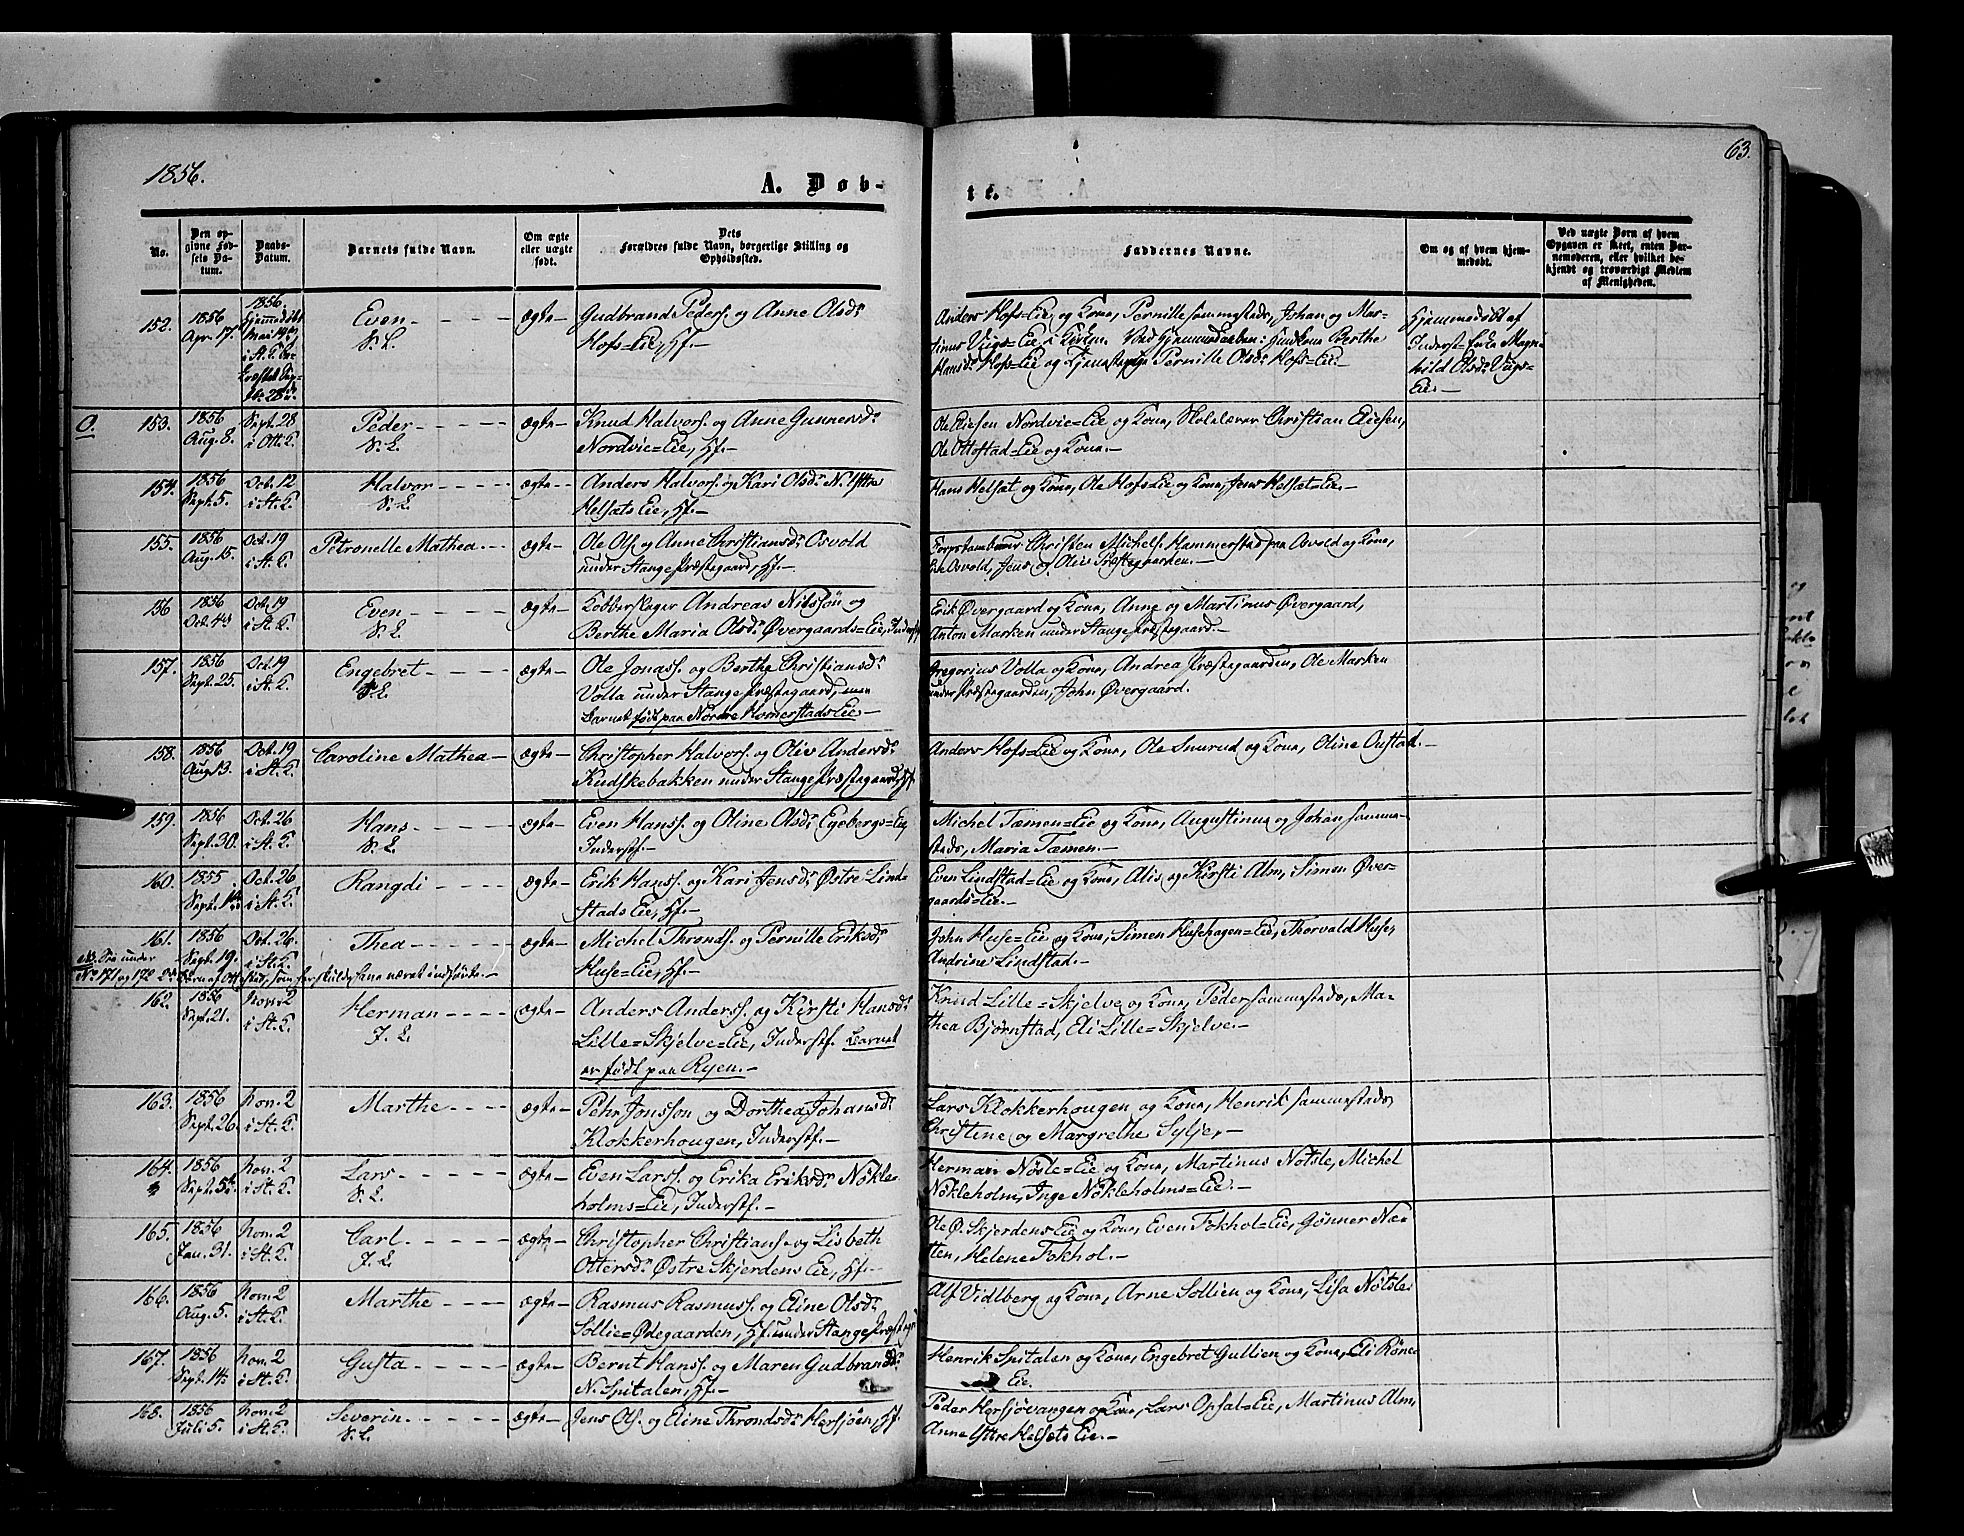 1856.
A. Døb-
te.
63.
No.
Den op-
givne Fød-
sels Da-
tum.
Daabs-
Datum.
Barnets fulde Navn.
Om ægte
eller uægte
født.
Dets
Forældres fulde Navn, borgerlige Stilling og
Opholdssted.
Faddernes Navne.
Om og af hvem hjem-
medøbt.
Ved uægte Børn af hvem
Opgaven er skeet, enten Bar-
nemoderen, eller hvilket be-
kjendt og troværdigt Medlem
af Menigheden.
152. 1856 Apr. 17. 1856. Hjemmedøbt Mai 14de i St. K. Sept. 28de Even S. L. ægte Gudbrand Peders. og Anne Olsdr
Hofs=Eie, Hf.
Anders Hofs=Eie og Kone, Pernille sammesteds, Johan og Mar-
tinus Vigs=Eie i Kirken. Ved Hjemmedaaben: Berthe
Hansdr Hofs=Eie og Pernille Olsdr Hofs=Eie.
Hjemmedøbt af
Inderst= Mag-
hild Olsdr Viigs-
Eie.
O. 153. 1856 Aug. 8. Sept. 28 i Ott. K. Peder S. L. ægte Knud Halvors. og Anne Gunnersdr
Nordvie=Eie, Hf.
Ole Eliesen Nordvie=Eie og Kone, Skolelærer Christian Eliesen,
Ole Ottestad=Eie og Kone.
154. 1856 Sept. 5. Oct. 12 i St. K. Halvor S. L. ægte Anders Halvors. og Kari Olsdr N. Yttre
Helsæts Eie, Hf.
Hans Helsæt og Kone, Ole Hofs=Eie og Kone, Jens Helsæt=Eie.
155. 1856 Aug. 15. Oct. 19 i St. K. Petronelle Mathea ægte Ole Ols. og Anne Christiansdr Osvold
under Stange Præstegaard, Hf.
Christen Michels. Hammerstad paa Osvold og Kone,
Osvold, Jens og Oliv Præstegaarden.
156 1856 Oct. 4de Oct. 19 i St. K. Even S. L. ægte Kobberslager Andreas Nilssøn og
Berthe Maria Olsdr Øvergaards=Eie, Inderst
Erik Øvergaard og Kone, Anne og Martinus Øvergaard,
Anton Marken under Stange Præstegaard.
157. 1856 Sept. 25. Oct. 19 i St. K. Engebret S. L. ægte Ole Jonass. og Berthe Christiansdr
Volla under Stange Præstegaard, men
Barnet født paa Nordre Homerstads Eie
Gregorius Volla og Kone, Andrea Præstegaarden, Ole Marken
under Præstegaarden, John Øvergaard.
158. 1856 Aug. 13. Oct. 19 i St. K. Caroline Mathea ægte Christopher Halvors. og Oliv Andersdr
Kudskebakken under Stange Præstegaard, Hf.
Anders Hofs=Eie og Kone, Ole Smurud og Kone, Oline Oustad.
159. 1856 Sept. 30. Oct. 26 i St. K. Hans S. L. ægte Even Hanss. og Oline Olsdr Egebergs=Eie,
Inderstf.
Michel Tæmen=Eie og Kone, Augustinus og Johan samme-
steds, Maria Tæmen.
160. 1855 Sept. Oct. 26 i St. K. Rangdi ægte Erik Hanss. og Kari Jensdr Østre Lind-
stads Eie, Hf.
Even Lindstad=Eie og Kone, Alis og Kirsti Alm, Simen Øver-
gaards=Eie.
161. 1856 Sept. 19. Oct. 26. i St. K. Thea ægte Michel Thronds. og Pernille Eriksdr
Huse=Eie, Hf.
John Huse=Eie og Kone, Simen Husehagen=Eie, Thorvald Huse,
Andrine Lindstad.
NB. See under
No 171 og 172
162. 1856 Sept. 21. Nov. 2 i St. K. Herman F. L. ægte Anders Anderss. og Kirsti Hansdr
Lille=Skjelve=Eie, Inderstf. Barnet
er født paa Ryen.
Knud Lille=Skjelve og Kone, Peder sammesteds, Ma-
thea Bjørnstad, Eli Lille=Skjelve.
163. 1856 Sept. 26. Nov. 2 i St. K. Marthe ægte Pehr Jonsson og Dorthea Johansdr
Klokkerhougen, Inderstf.
Lars Klokkerhougen og Kone, Henrik sammesteds,
Christine og Margrethe Sylje,
164. 1856 Sept. 5te Nov. 2 i St. K. Lars S. L. ægte Even Larss. og Erika Eriksdr Nøkle-
holms=Eie, Inderstf.
Herman Nøsle=Eie og Kone, Martinus Nøtsle, Michel
Nøkleholm, Inge Nøkleholms=Eie.
165. 1856 Jan. 31. Nov. 2 i St. K. Carl F. L. ægte Christopher Christians. og Lisbeth
Ottersdr Østre Skjerdens Eie, Hf.
Ole Ø. Skjerdens Eie og Kone, Even Fokhol=Eie, Gønner Næ-
ten, Helene Fokhol.
166. 1856 Aug. 5. Nov. 2 i St. K. Marthe ægte Rasmus Rasmuss. og Eline Olsdr
Sollie=Ødegaarden, Hf. under Stange Præstegd
Alf Vidlberg og Kone, Arne Sollien og Kone, Lisa Nøtsle
167. 1856 Sept. 14de Nov. 2 i St. K. Gusta ægte Bernt Hanss. og Maren Gudbrandsdr
N. Spitalen, Hf.
Henrik Spitalen og Kone, Engebret Gullien og Kone, Eli Røne
Eie.
168. 1856 Juli 5. Nov. 2 i St. K. Severin S. L. ægte Jens Ols. og Eline Throndsdr Hersjøen, Hf.
Peder Hersjøvangen og Kone, Lars Opsal=Eie, Martinus Alm,
Anne Yttre Helsæts Eie.